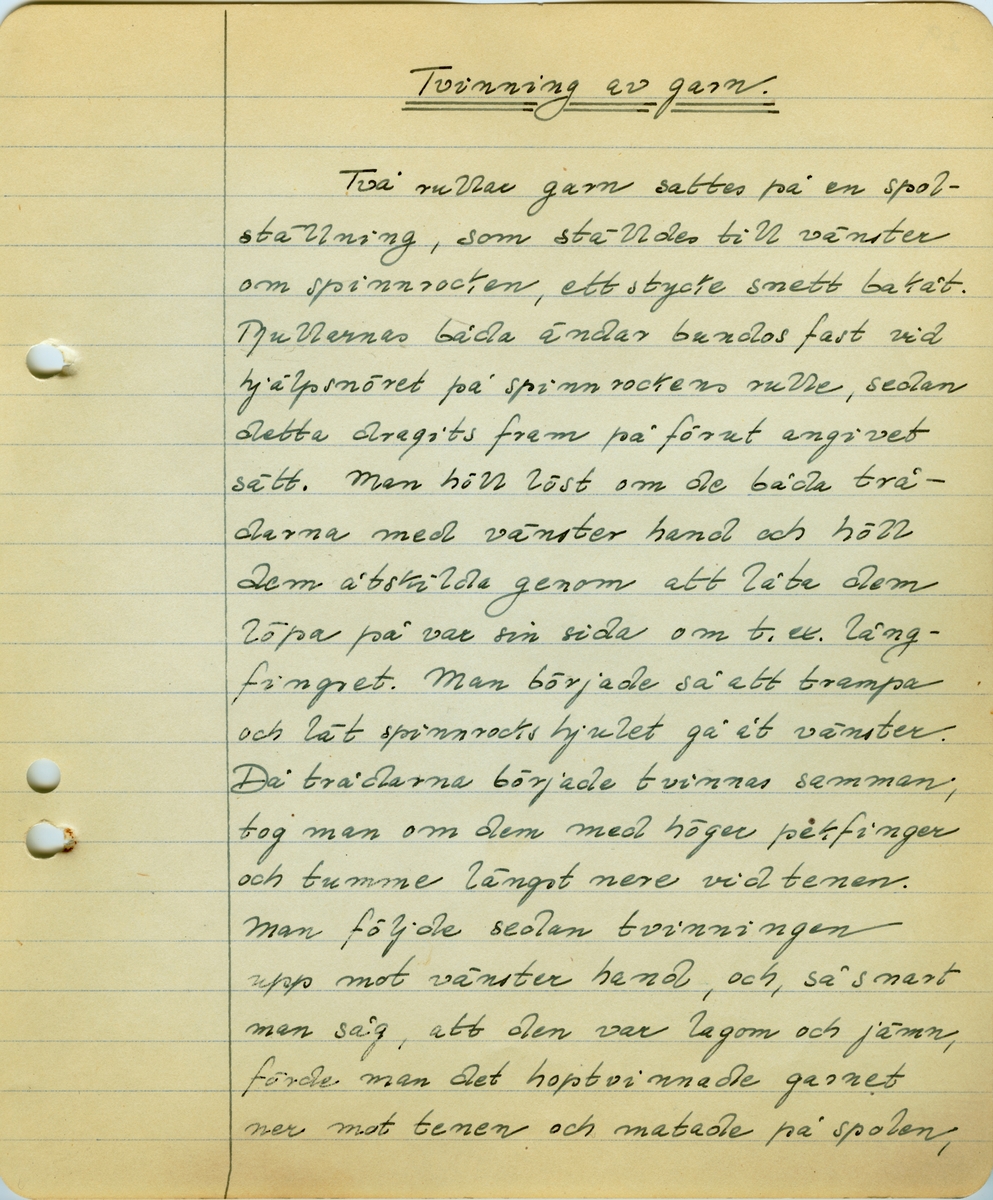 Tvinning av garn.
Två rullar garn sattes på en spol-
ställning, som ställdes till vänster
om spinnrocken, ett stycke snett bakåt.
Rullarnas båda ändar bundos fast vid
hjälpsnöret på spinnrockens rulle, sedan
detta dragits fram på förut angivet
sätt. Man höll löst om de båda trå-
darna med vänster hand och höll
dem åtskilda genom att låta dem
löpa på var sin sida om t. ex. lång-
fingret. Man började så att trampa
och lät spinnrockshjulet gå åt vänster.
Då trådarna började tvinnas samman,
tog man om dem med höger pekfinger
och tumme längst nere vid tenen.
Man följde sedan tvinningen
upp mot vänster hand, och, så snart
man såg, att den var lagom och jämn,
förde man det hoptvinnade garnet
ner mot tenen och matade på spolen,